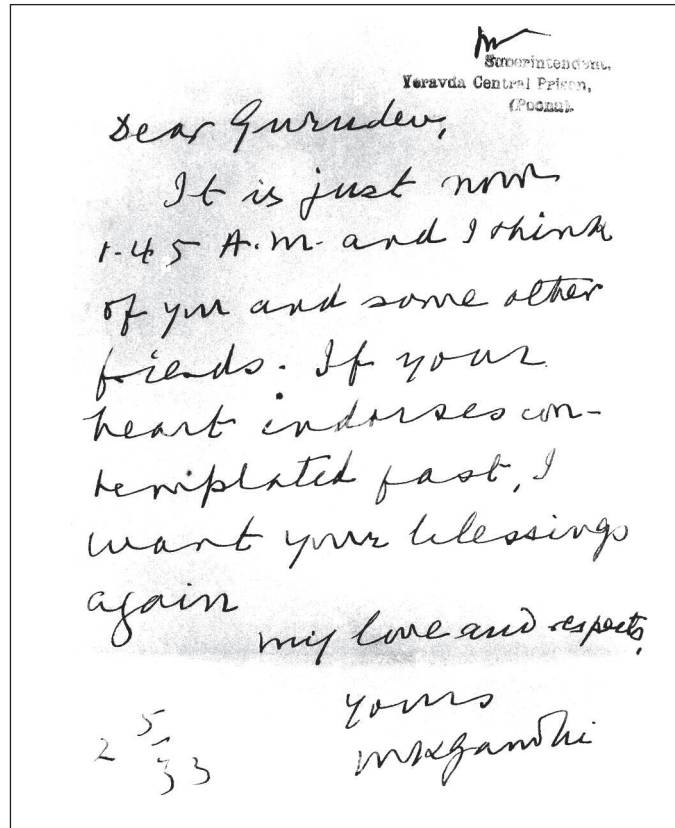 Superintendent,
Yeravda Central Prison,
(Poona).
Dear Gurudev,
It is just now
1-45 A.M. and I think
of you and some other
friends. If your
heart endorses con-
templated fast, I
want your blessings
again
my love and respects,
yours
MKGandhi
2 5/33